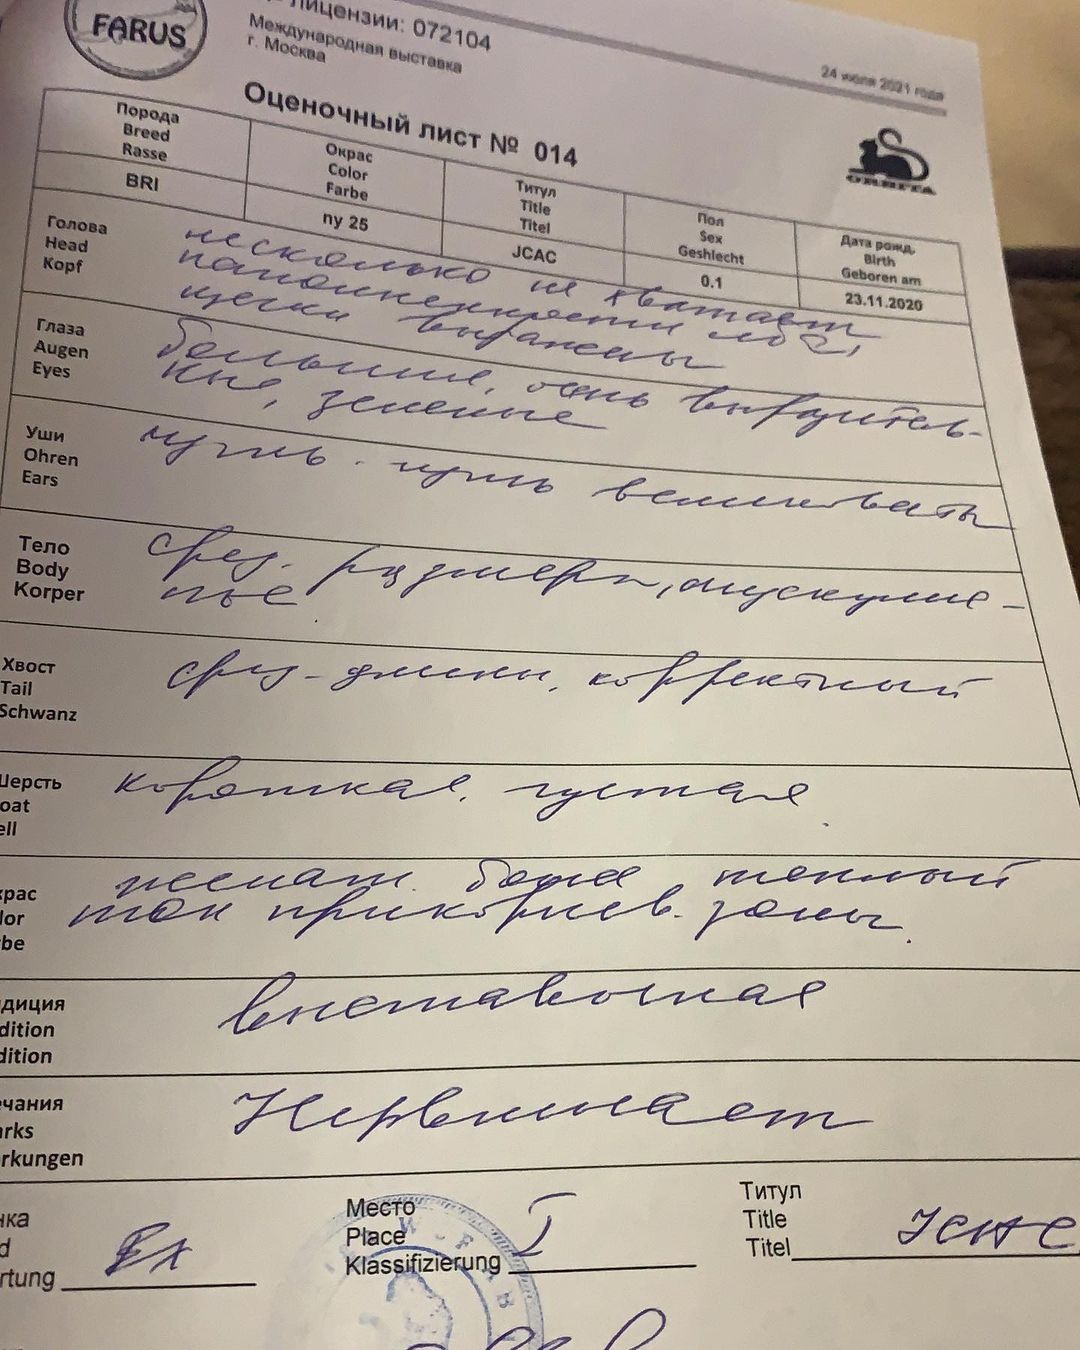 FARUS
лицензии: 072104
Международная выставка
г. Москва
24 июля 2021 года
Оценочный лист № 014
ORBITA
Порода
Breed
Rasse
Окрас
Color
Farbe
Титул
Title
Titel
Пол
Sex
Geshlecht
Дата рожд.
Birth
Geboren am
BRI
ny 25
JCAC
0.1
23.11.2020
Голова
Head
Kopf
несколько не хватает
наполненности лба,
щеки выражены
Глаза
Augen
Eyes
большие, очень выразитель-
ные, зеленые
Уши
Ohren
Ears
чуть-чуть великоваты
Тело
Body
Korper
сред. размера, мускулис-
тое
Хвост
Tail
Schwanz
сред. длины, корректный
Шерсть
oat
ell
короткая, густая
крас
lor
be
желат. более теплый
тон прикорнев. зоны.
диция
dition
dition
выставочная
чания
arks
rkungen
Нервничает
нка
d
rtung
Ex
Место
Place
Klassifizierung
I
Титул
Title
Titel
JCAC
W-FAB